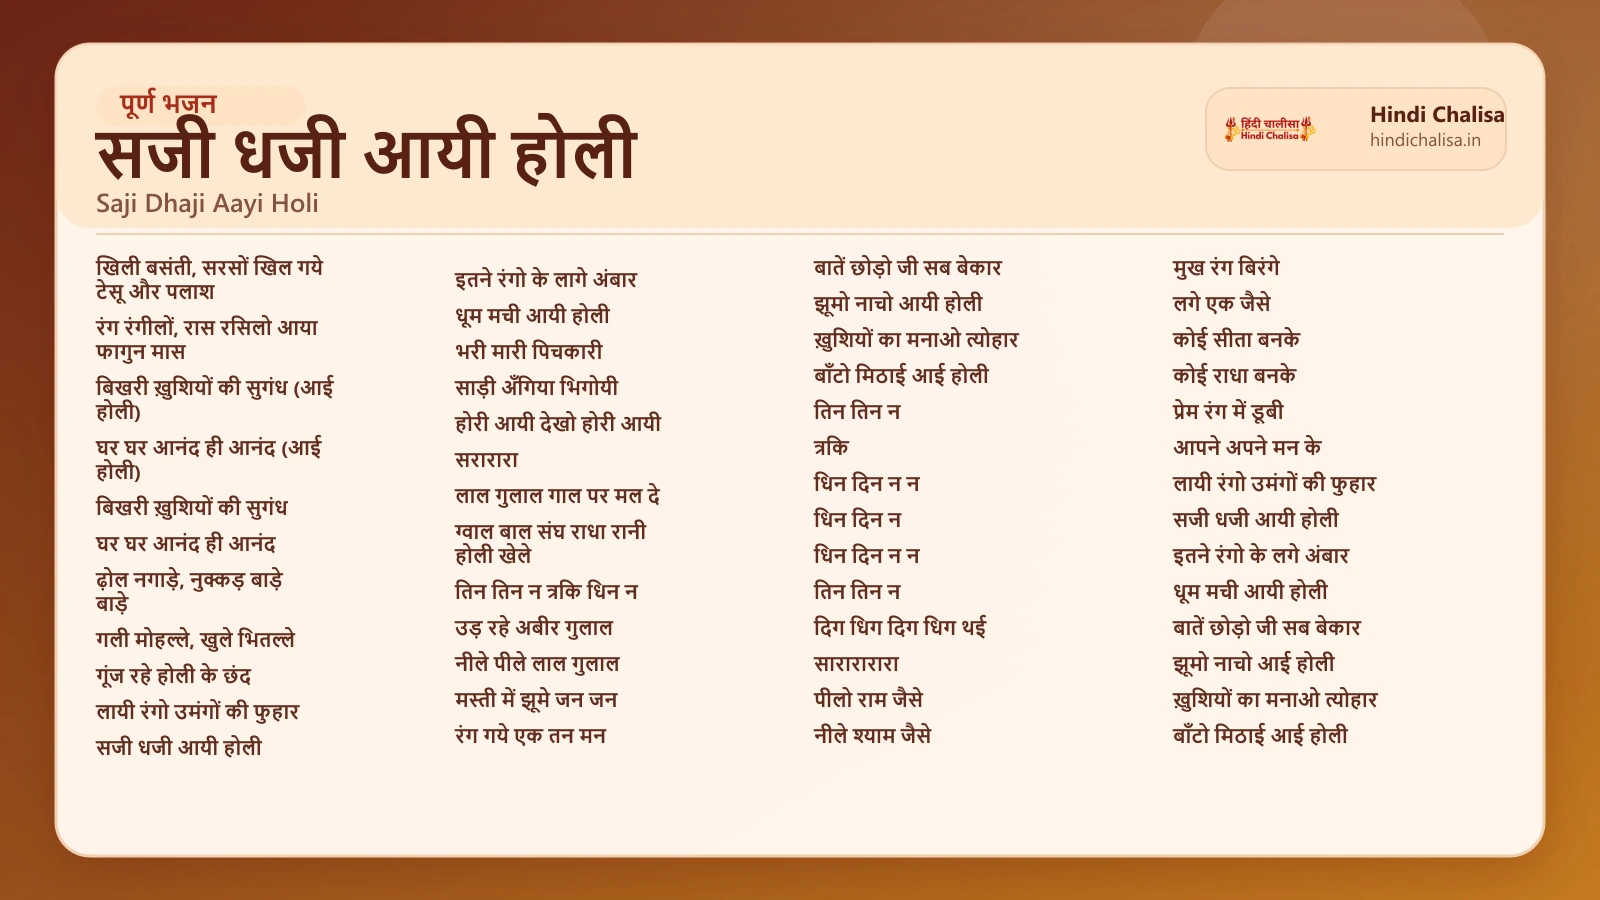 पूर्ण भजन
सजी धजी आयी होली
Saji Dhaji Aayi Holi
हिंदी चालीसा
Hindi Chalisa
Hindi Chalisa
hindichalisa.in
खिली बसंती, सरसों खिल गये
टेसू और पलाश
रंग रंगीलों, रास रसिलो आया
फागुन मास
बिखरी ख़ुशियों की सुगंध (आई
होली)
घर घर आनंद ही आनंद (आई
होली)
बिखरी ख़ुशियों की सुगंध
घर घर आनंद ही आनंद
ढ़ोल नगाड़े, नुक्कड़ बाड़े
बाड़े
गली मोहल्ले, खुले भितल्ले
गूंज रहे होली के छंद
लायी रंगो उमंगों की फुहार
सजी धजी आयी होली
इतने रंगो के लागे अंबार
धूम मची आयी होली
भरी मारी पिचकारी
साड़ी अँगिया भिगोयी
होरी आयी देखो होरी आयी
सरारारा
लाल गुलाल गाल पर मल दे
ग्वाल बाल संघ राधा रानी
होली खेले
तिन तिन न त्रकि धिन न
उड़ रहे अबीर गुलाल
नीले पीले लाल गुलाल
मस्ती में झूमे जन जन
रंग गये एक तन मन
बातें छोड़ो जी सब बेकार
झूमो नाचो आयी होली
ख़ुशियों का मनाओ त्योहार
बाँटो मिठाई आई होली
तिन तिन न
त्रकि
धिन दिन न न
धिन दिन न
धिन दिन न न
तिन तिन न
दिग धिग दिग धिग थई
सारारारारा
पीलो राम जैसे
नीले श्याम जैसे
मुख रंग बिरंगे
लगे एक जैसे
कोई सीता बनके
कोई राधा बनके
प्रेम रंग में डूबी
आपने अपने मन के
लायी रंगो उमंगों की फुहार
सजी धजी आयी होली
इतने रंगो के लगे अंबार
धूम मची आयी होली
बातें छोड़ो जी सब बेकार
झूमो नाचो आई होली
ख़ुशियों का मनाओ त्योहार
बाँटो मिठाई आई होली